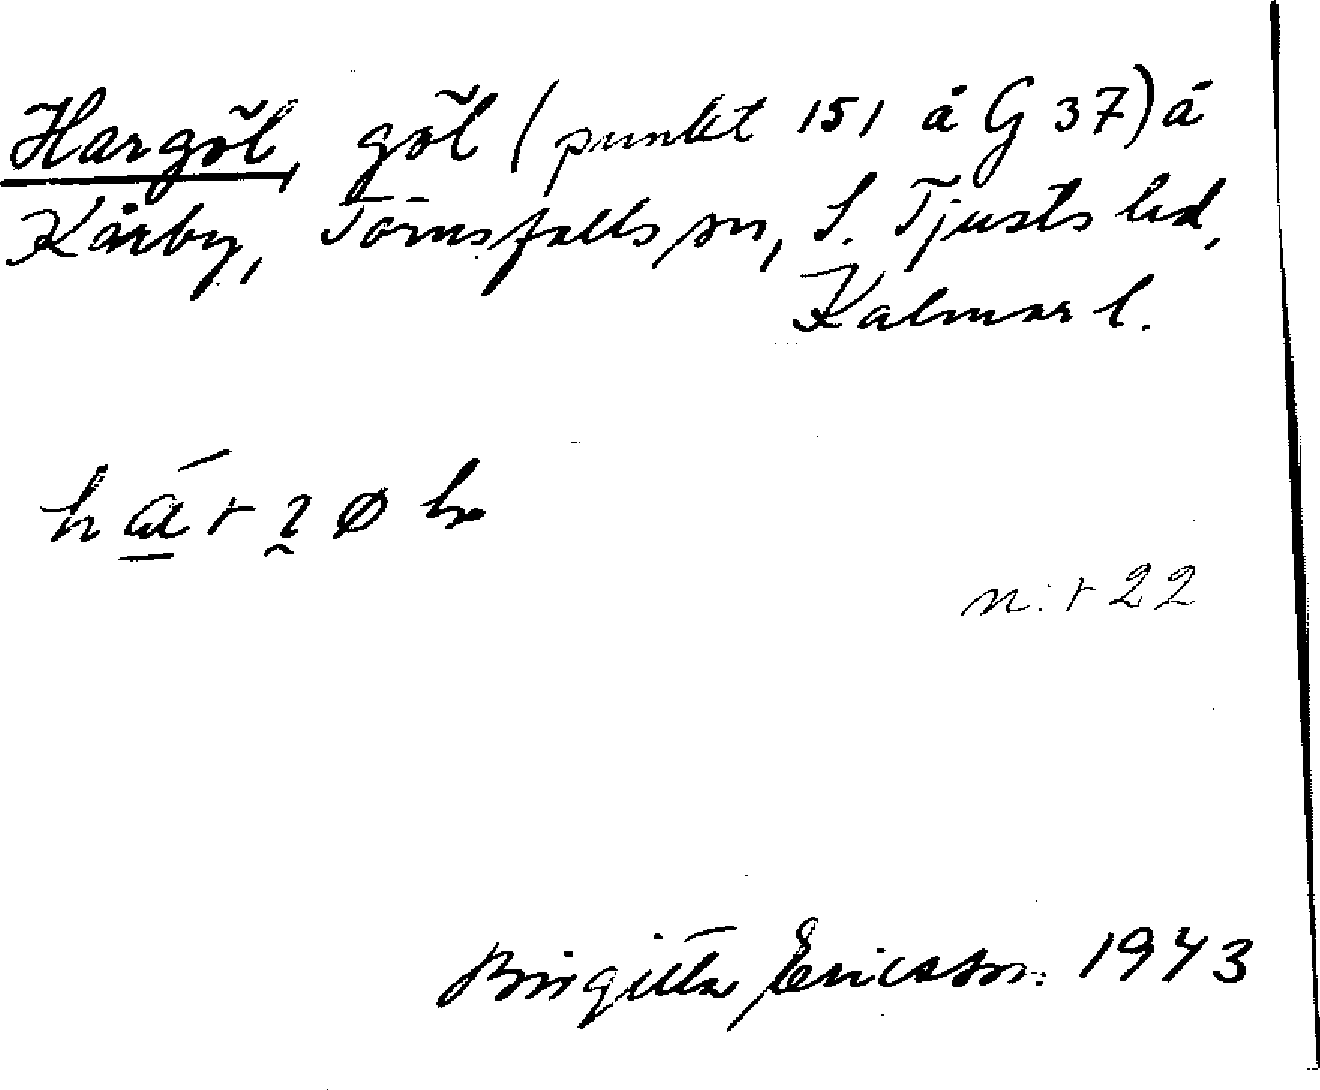 Hargöl, göl (punkt 151 å G 37) å
Kårby, Törnsfalls sn, S. Tjusts hd,
Kalmar l.
Birgitta Ericsson. 1943